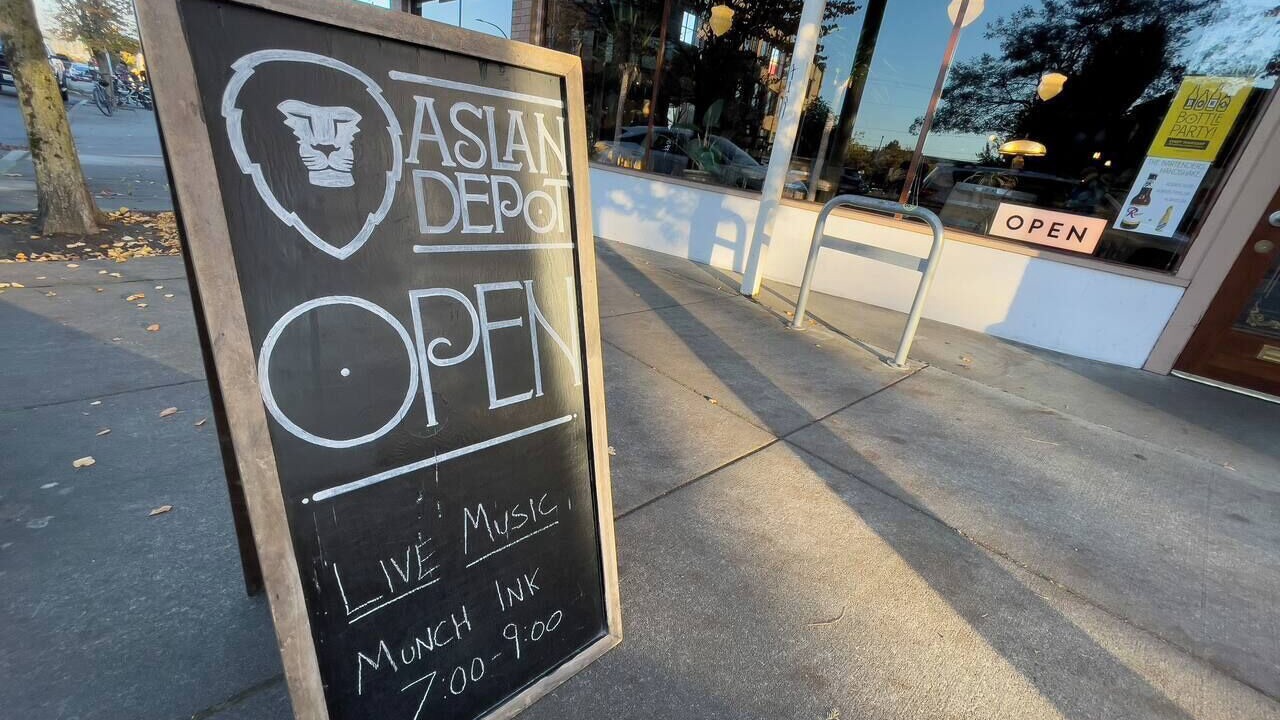 ASLAN
DEPOT
OPEN
LIVE MUSIC
MUNCH INK
7:00-9:00
BOTTLE
PARTY!
THE BARTENDER'S
HANDSHAKE
OPEN